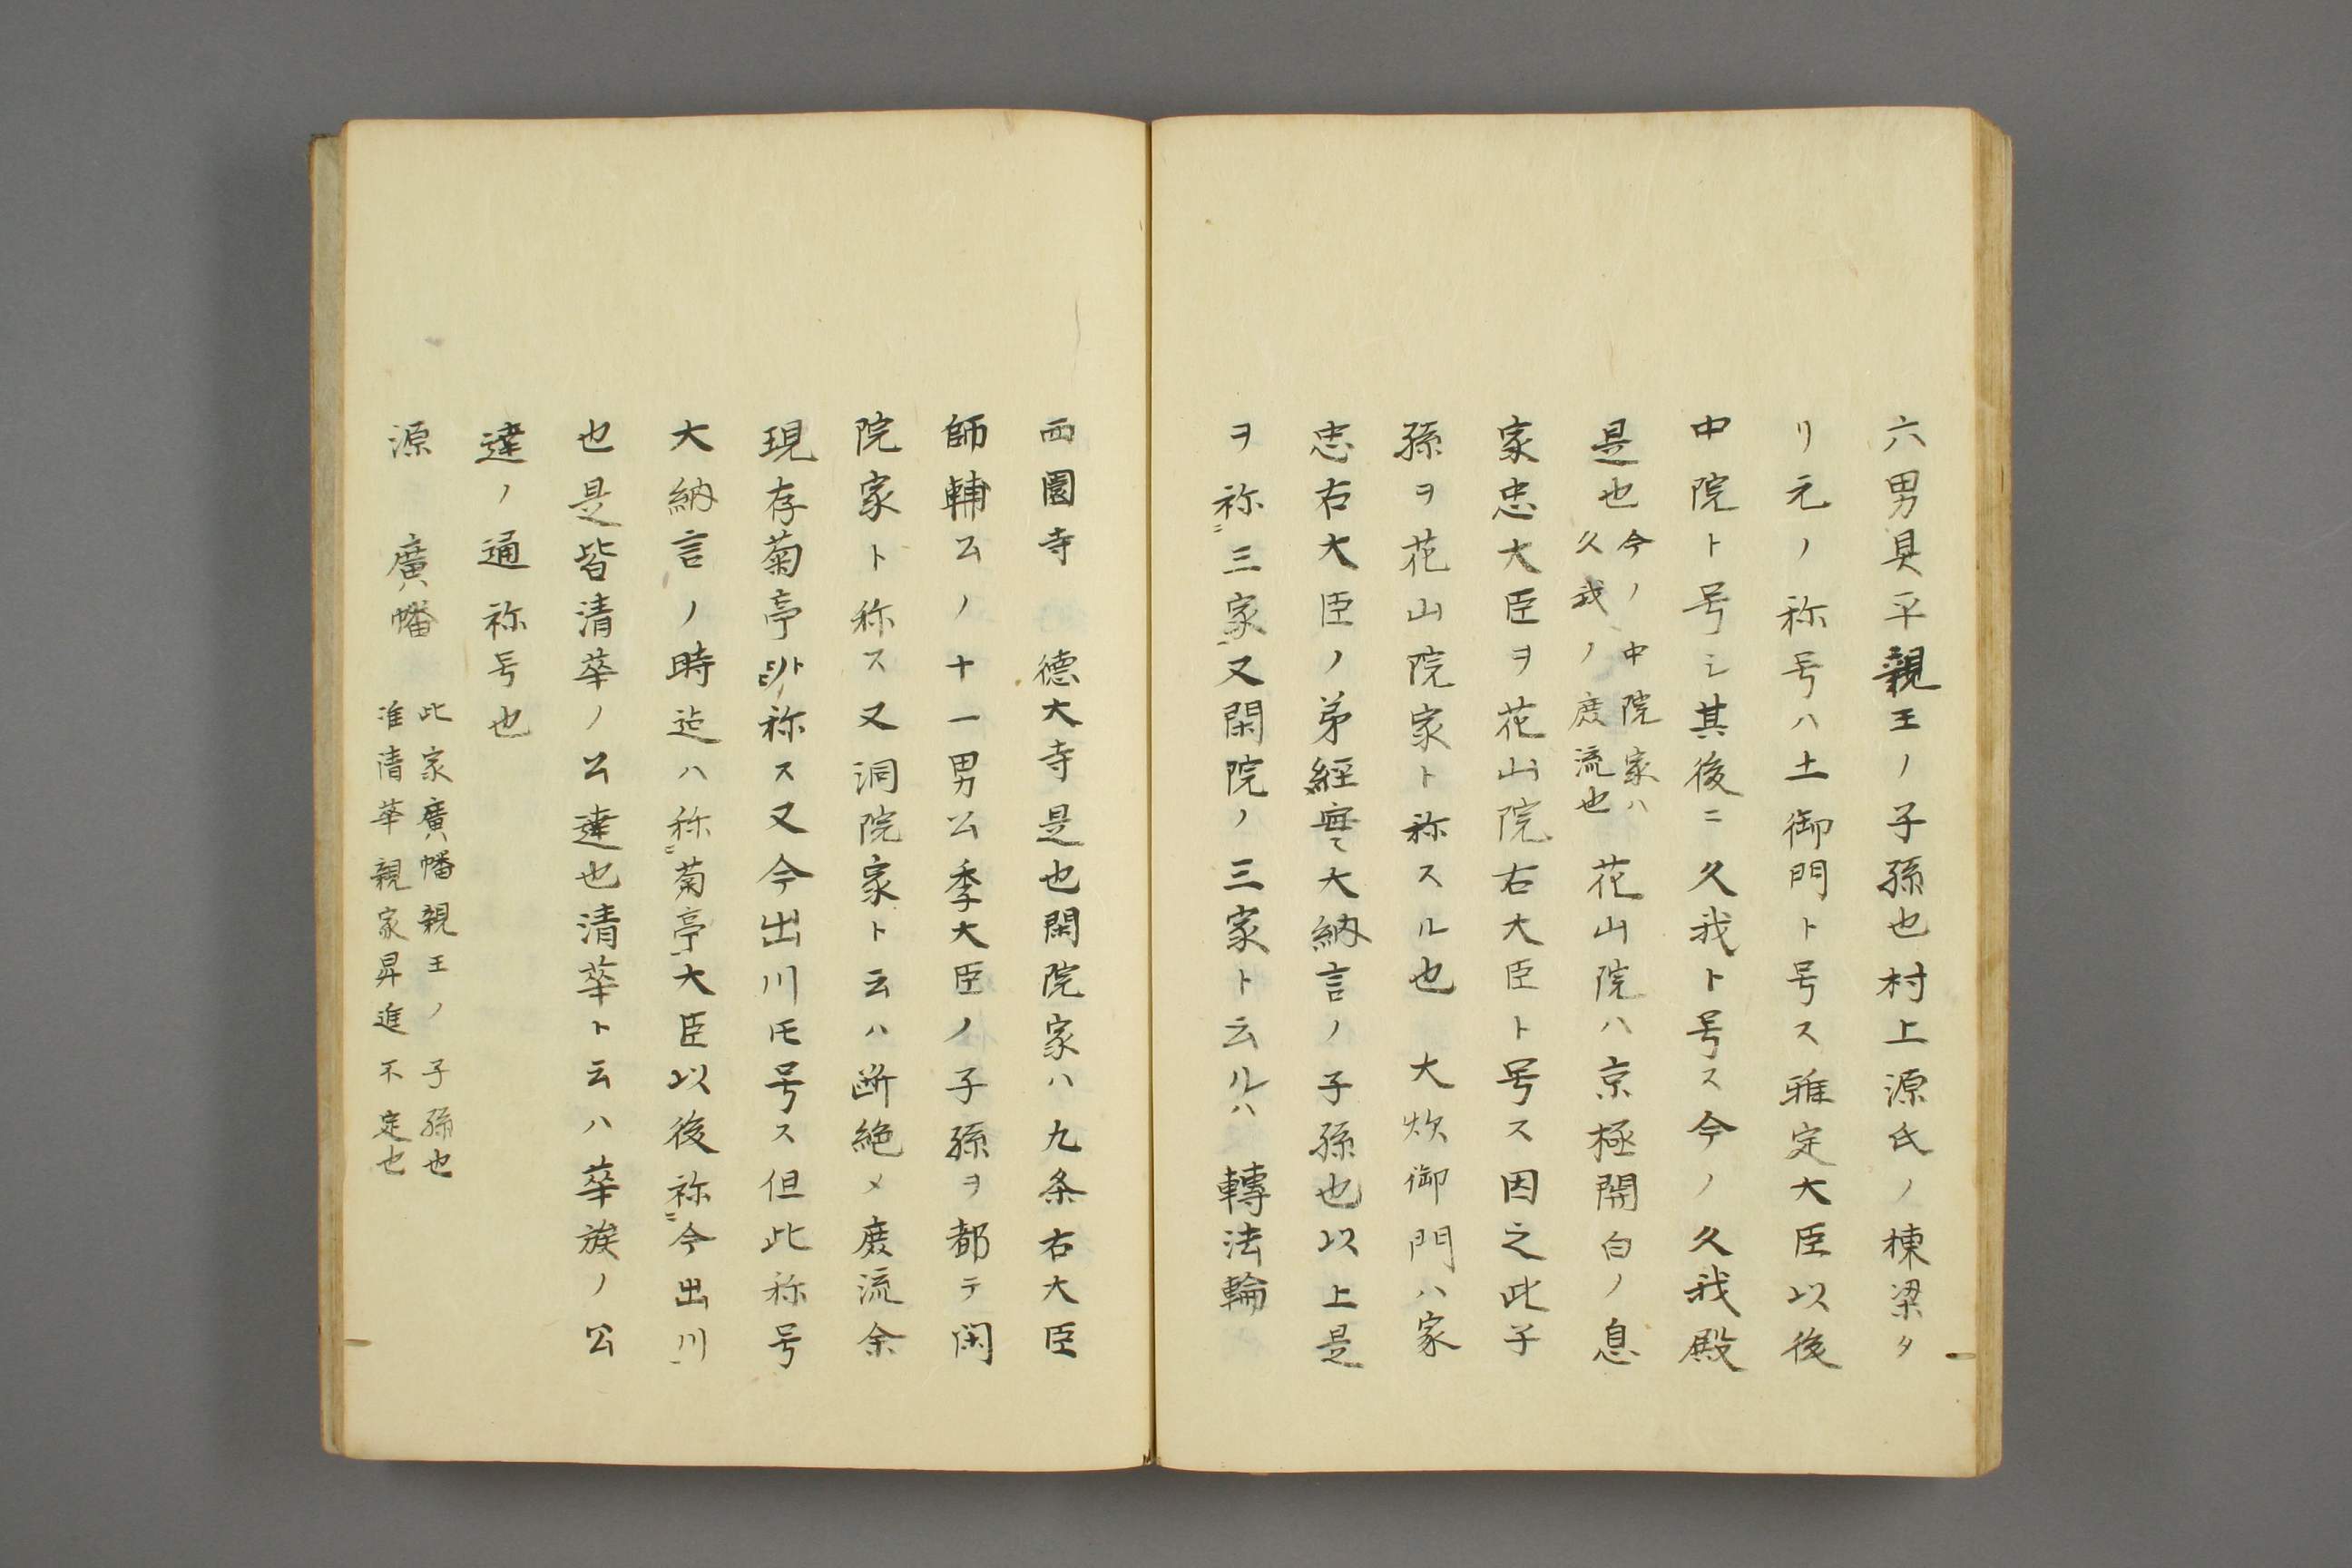 六男具平親王ノ子孫也村上源氏ノ棟梁タ
リ元ノ称号ハ土御門ト号ス雅定大臣以後
中院ト号シ其後ニ久我ト号ス今ノ久我殿
是也
今ノ中院家ハ
久我ノ庶流也
花山院ハ京極関白ノ息
家忠大臣ヲ花山院右大臣ト号ス因之此子
孫ヲ花山院家ト称スル也 大炊御門ハ家
忠右大臣ノ弟経実大納言ノ子孫也以上是
ヲ称ニ三家ト又閑院ノ三家ト云ルハ 轉法輪
西園寺 德大寺是也閑院家ハ九条右大臣
師輔公ノ十一男公季大臣ノ子孫ヲ都テ閑
院家ト称ス又洞院家ト云ハ断絶〆庶流余
現存菊亭称ス又今出川モ号ス但此称号
大納言ノ時迄ハ称ニ菊亭ト大臣以後称ニ今出川ト
也是皆清華ノ公達也清華ト云ハ華族ノ公
達ノ通称号也
源 廣幡
此家廣幡親王ノ子孫也
准清華親家昇進不定也